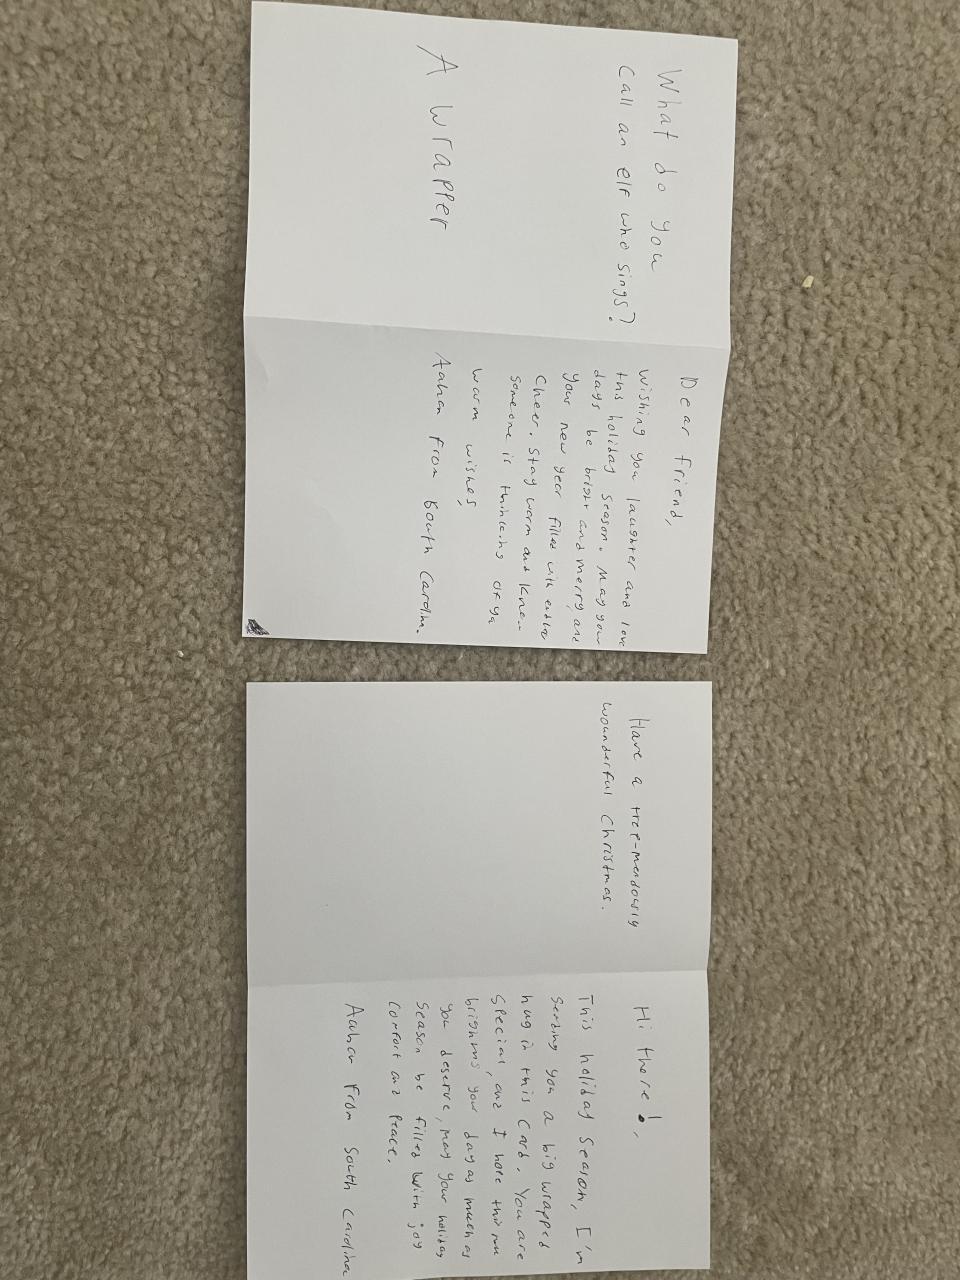 What do you
Call an elf who sings?
A wrapper
Dear friend,
wishing you laughter and love
this holiday season. May your
days be bright and merry, and
your new year filled with endless
cheer. Stay warm and know
someone is thinking of ya
warm wishes,
Aahan from South Carolina
Have a tree-mendously
wounderful Christmas.
Hi there!,
This holiday season, I'm
sending you a big wrapped
hug in this card. You are
special, and I hope this
brightens your day as much as
you deserve, may your holiday
season be filled with joy
comfort and peace.
Aahan from South Carolina